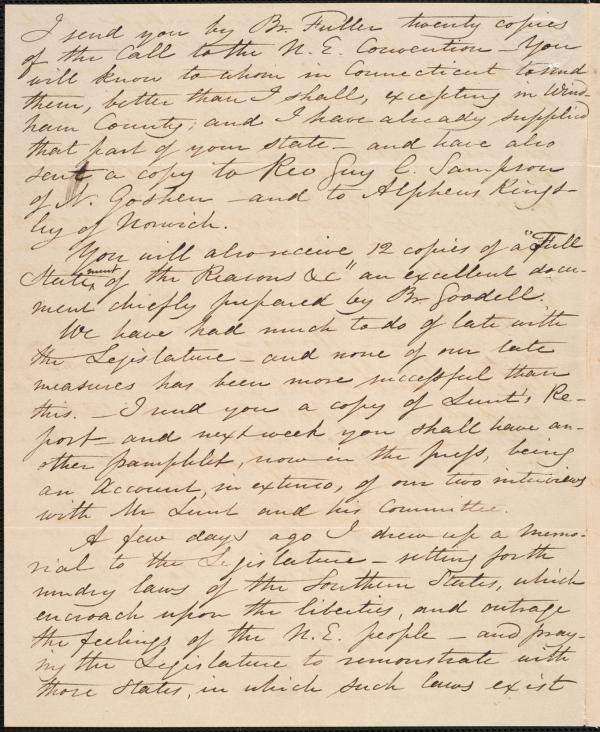 I send you by Br. Fuller twenty copies
of the Call to the N. E. Convention – You
will know to whom in Connecticut to send
them, better than I shall, excepting in Wind-
ham County; and I have already supplied
that part of your State – and have also
sent a copy to Rev Guy C. Sampson
of N. Goshen – and to Alpheus Kings-
ley of Norwich.
You will also receive 12 copies of a "Full
Statement of the Reasons &c" an excellent docu-
ment chiefly prepared by Br. Goodell.
We have had much to do of late with
the Legislature – and none of our late
measures has been more successful than
this. – I send you a copy of Lunt's Re-
port – and next week you shall have an-
other pamphlet, now in the press, being
an Account, in extenso, of our two interviews
with Mr Lunt and his Committee.
A few days ago I drew up a memo-
rial to the Legislature – setting forth
sundry laws of the Southern States, which
encroach upon the liberties, and outrage
the feelings of the N. E. people – and pray-
ing the Legislature to remonstrate with
those States, in which such laws exist